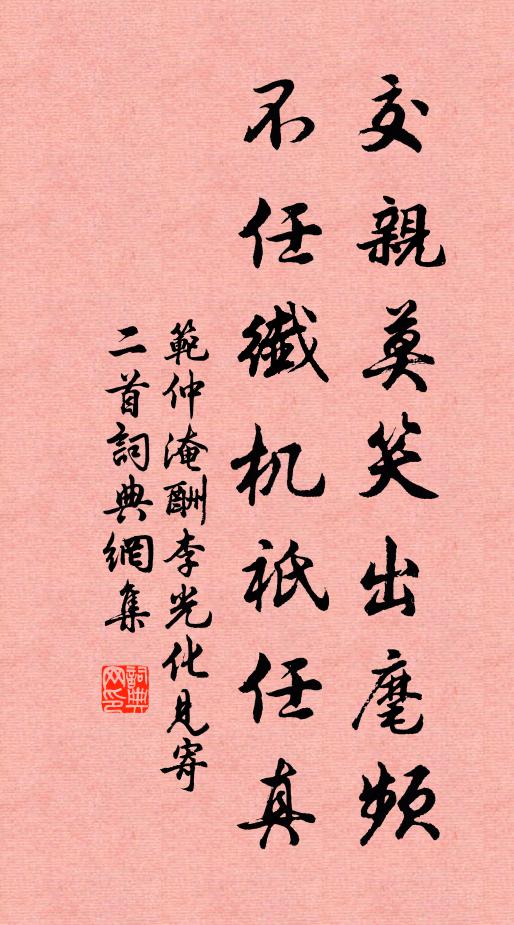 交親莫笑出麾頻
不任纖机祇任真
範仲淹酬李光化見寄
二首詞典網集
詞典網印